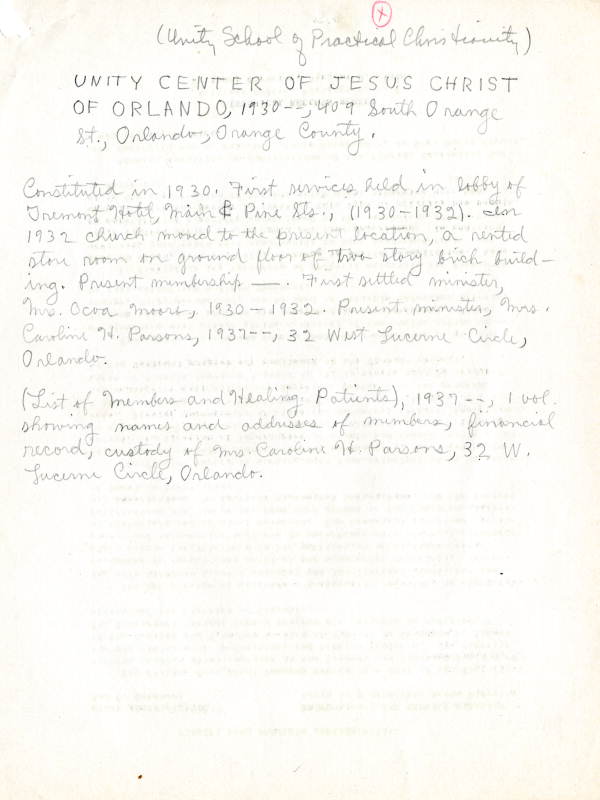 X
(Unity School of Practical Christianity)
UNITY CENTER OF JESUS CHRIST
OF ORLANDO, 1930--, 409 South Orange
St., Orlando, Orange County.
Constituted in 1930. First services held in lobby of
Tremont Hotel, Main & Pine Sts., (1930-1932). In
1932 church moved to the present location, a rented
store room on ground floor of two story brick build-
ing. Present membership —. First settled minister,
Mrs. Ocoa Moore, 1930-1932. Present minister, Mrs.
Caroline H. Parsons, 1937--, 32 West Lucerne Circle,
Orlando.
(List of Members and Healing Patients), 1937--, 1 vol.
showing names and addresses of members, financial
record, custody of Mrs. Caroline H. Parsons, 32 W.
Lucerne Circle, Orlando.